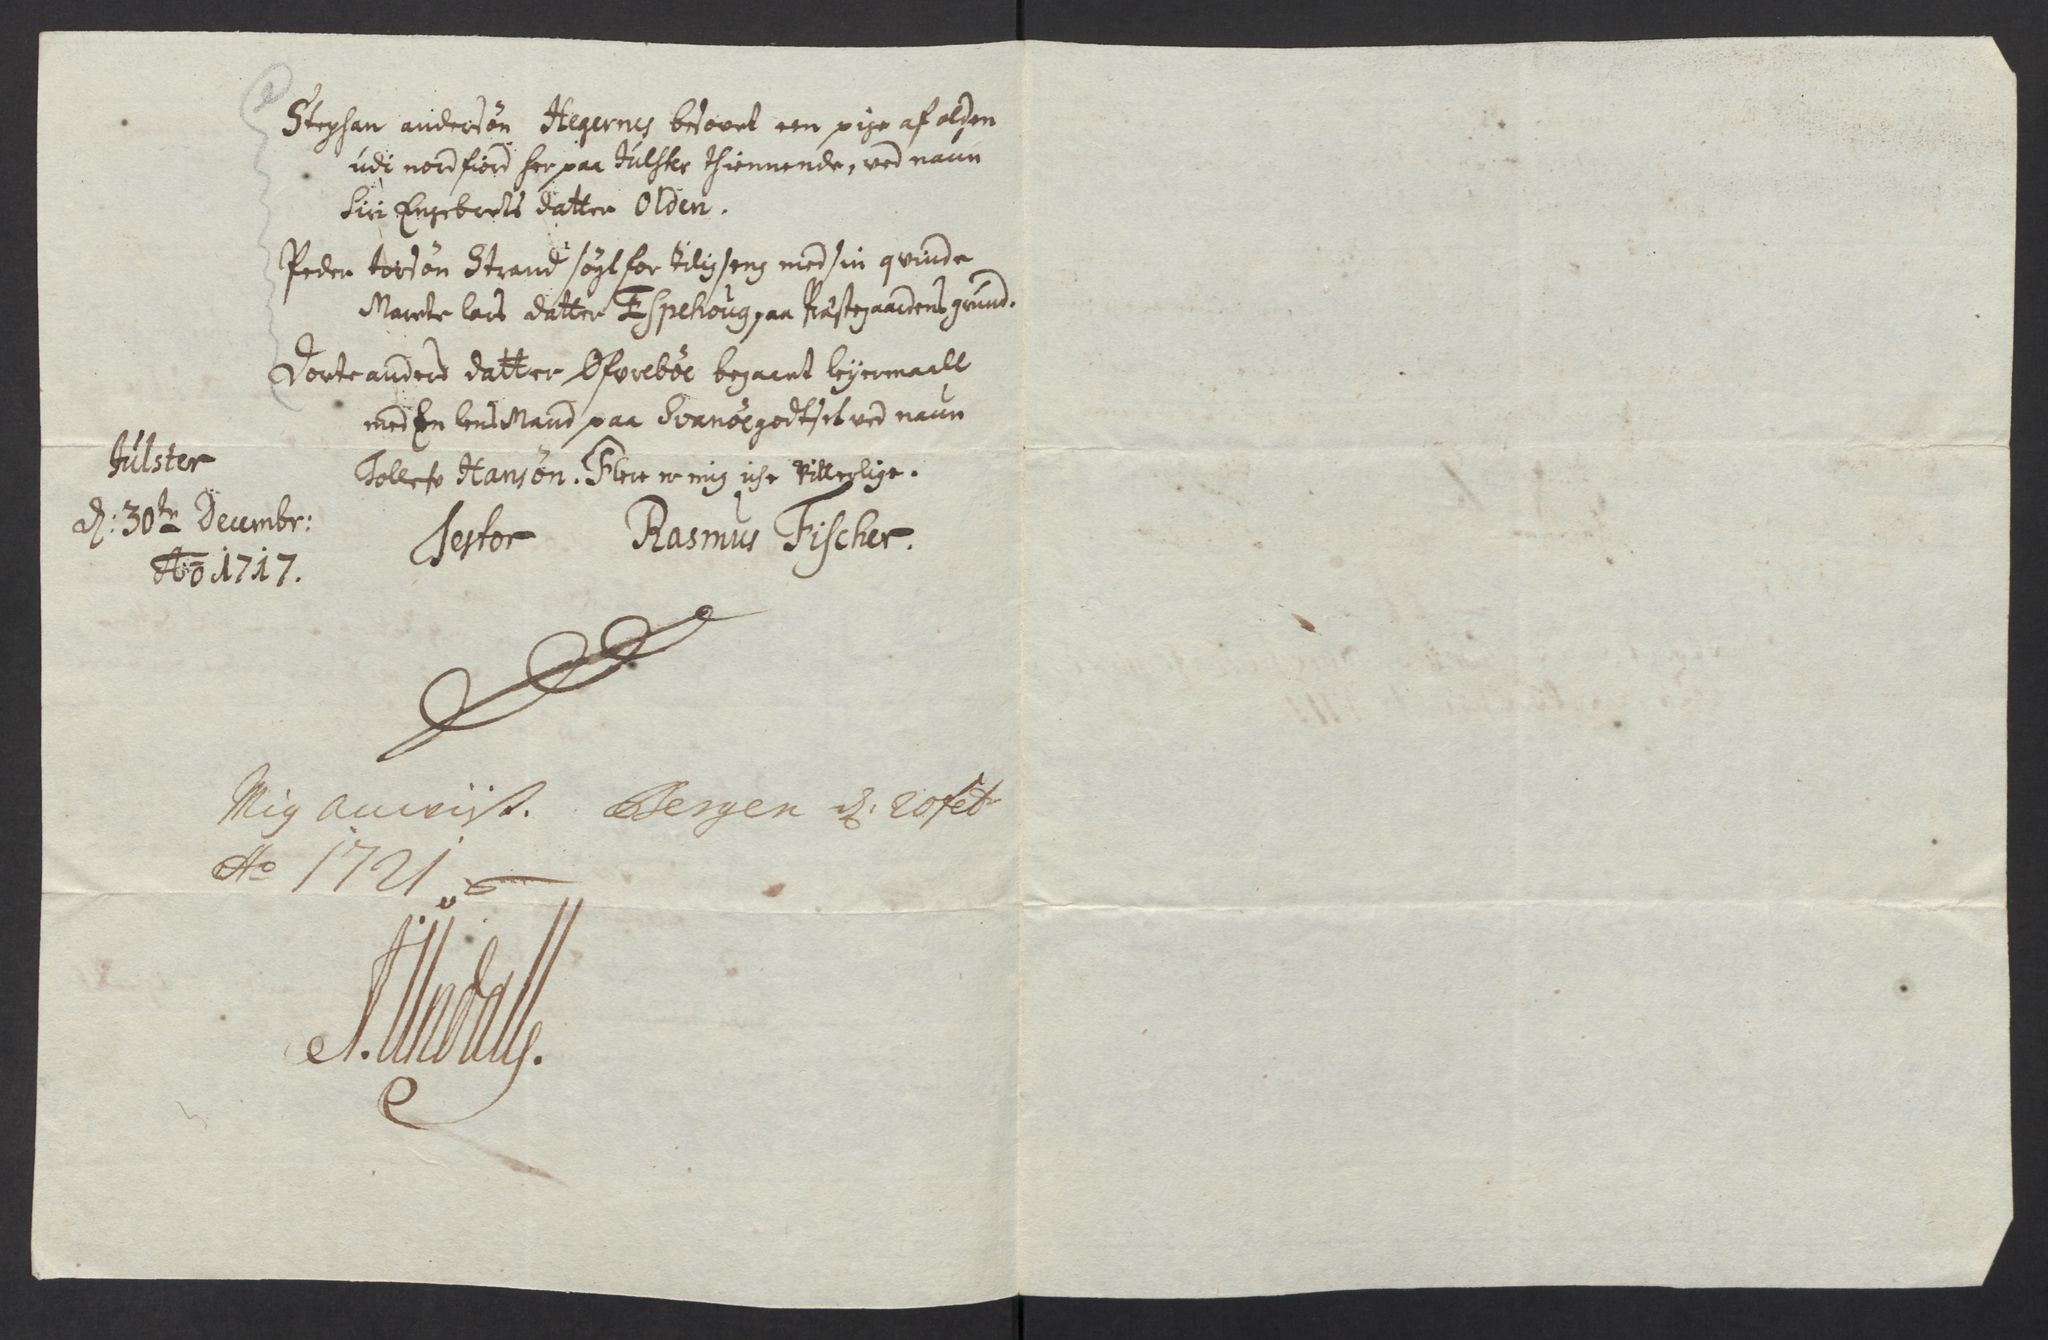 Stephan andersøn Hegernes besovet een pige af olden
udi nordfiord her paa Jülster thiennende, ved naun
Siri Engebrets datter Olden.
Peder torsøn Strand søgt for tilig seng med sin qvinde
Marete lars datter Espehoug paa Præstegaardens grund.
Dorte anders datter Øfrebøe begaaet leyermaall
med En lens Mand paa Svanøegodtset ved naun
Tollef Hansøn. Flere er mig iche vitterlige.
Jülster
d: 30te Decembr:
Ao 1717.
Testor Rasmus Fischer.
Mig anviist. Bergen d: 20 feb
Ao 1721